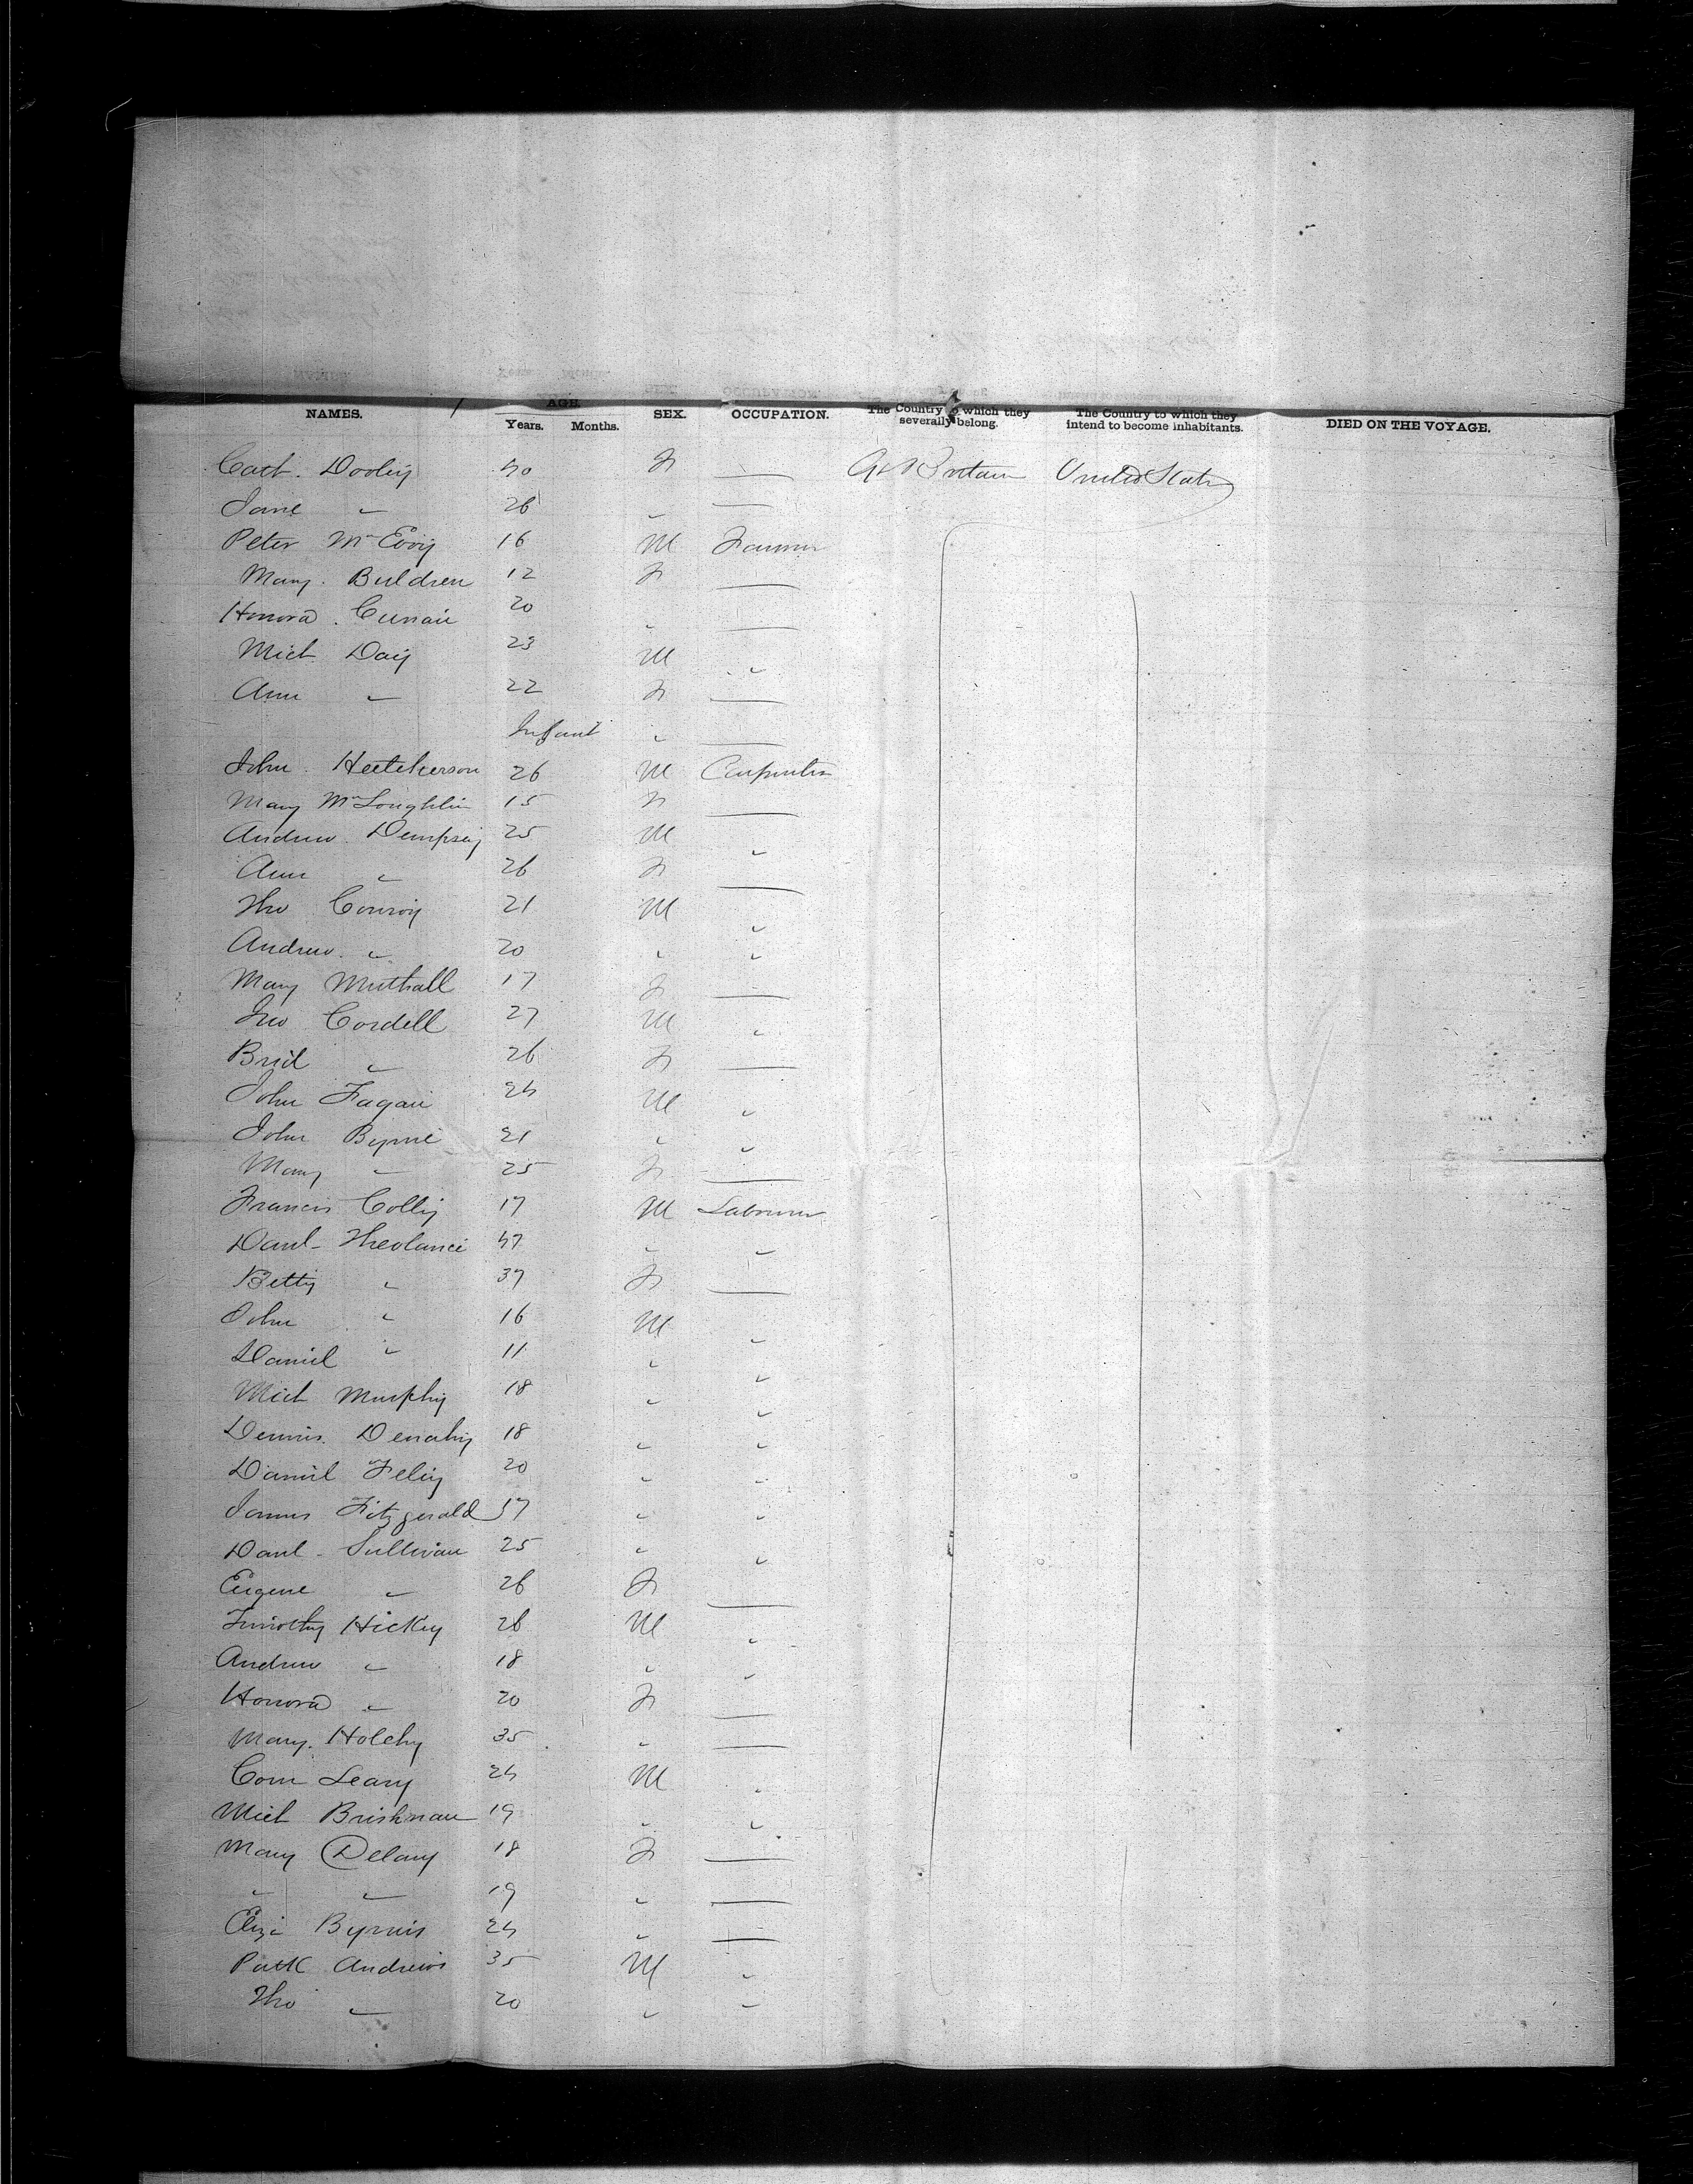 NAMES. AGE. SEX. OCCUPATION. The Country to which they severally belong. The Country to which they intend to become inhabitants. DIED ON THE VOYAGE.
Years. Months.
Cath. Dooley 40 F — Gt Britain United States
Jane " 26 " —
Peter McEvoy 16 M Farmer
Mary. Buldren 12 F —
Honora. 20 " —
Mich Day 23 M "
Ann " 22 F —
Infant " —
John. Hutcherson 26 M Carpenter
Mary McLoughlin 15 F —
Andrew. Dempsey 25 M "
Ann " 26 F —
Tho Conroy 21 M "
Andrew. " 20 " "
Mary Muthall 17 F —
Jno Cordell 27 M "
Brid " 26 F —
John Fagan 24 M "
John Byrne 21 " "
Mary " 25 F —
Francis Colly 17 M Labourer
Danl- 47 " "
Betty " 37 F —
John " 16 M "
Daniel " 11 " "
Mich Murphy 18 " "
Dennis. Denahy 18 " "
Daniel Feley 20 " "
James Fitzgerald 37 " "
Danl- Sullivan 25 " "
Eugene " 26 F —
Timothy Hickey 26 M "
Andrew " 18 " "
Honora " 20 F —
Mary. Holehy 35 " —
Corn Leary 24 M "
Mich Brishnan 19 " "
Mary Delany 18 F —
" " 19 " —
Eliza Byrnis 24 " —
Patk Andrews 35 M "
Tho " 20 " "